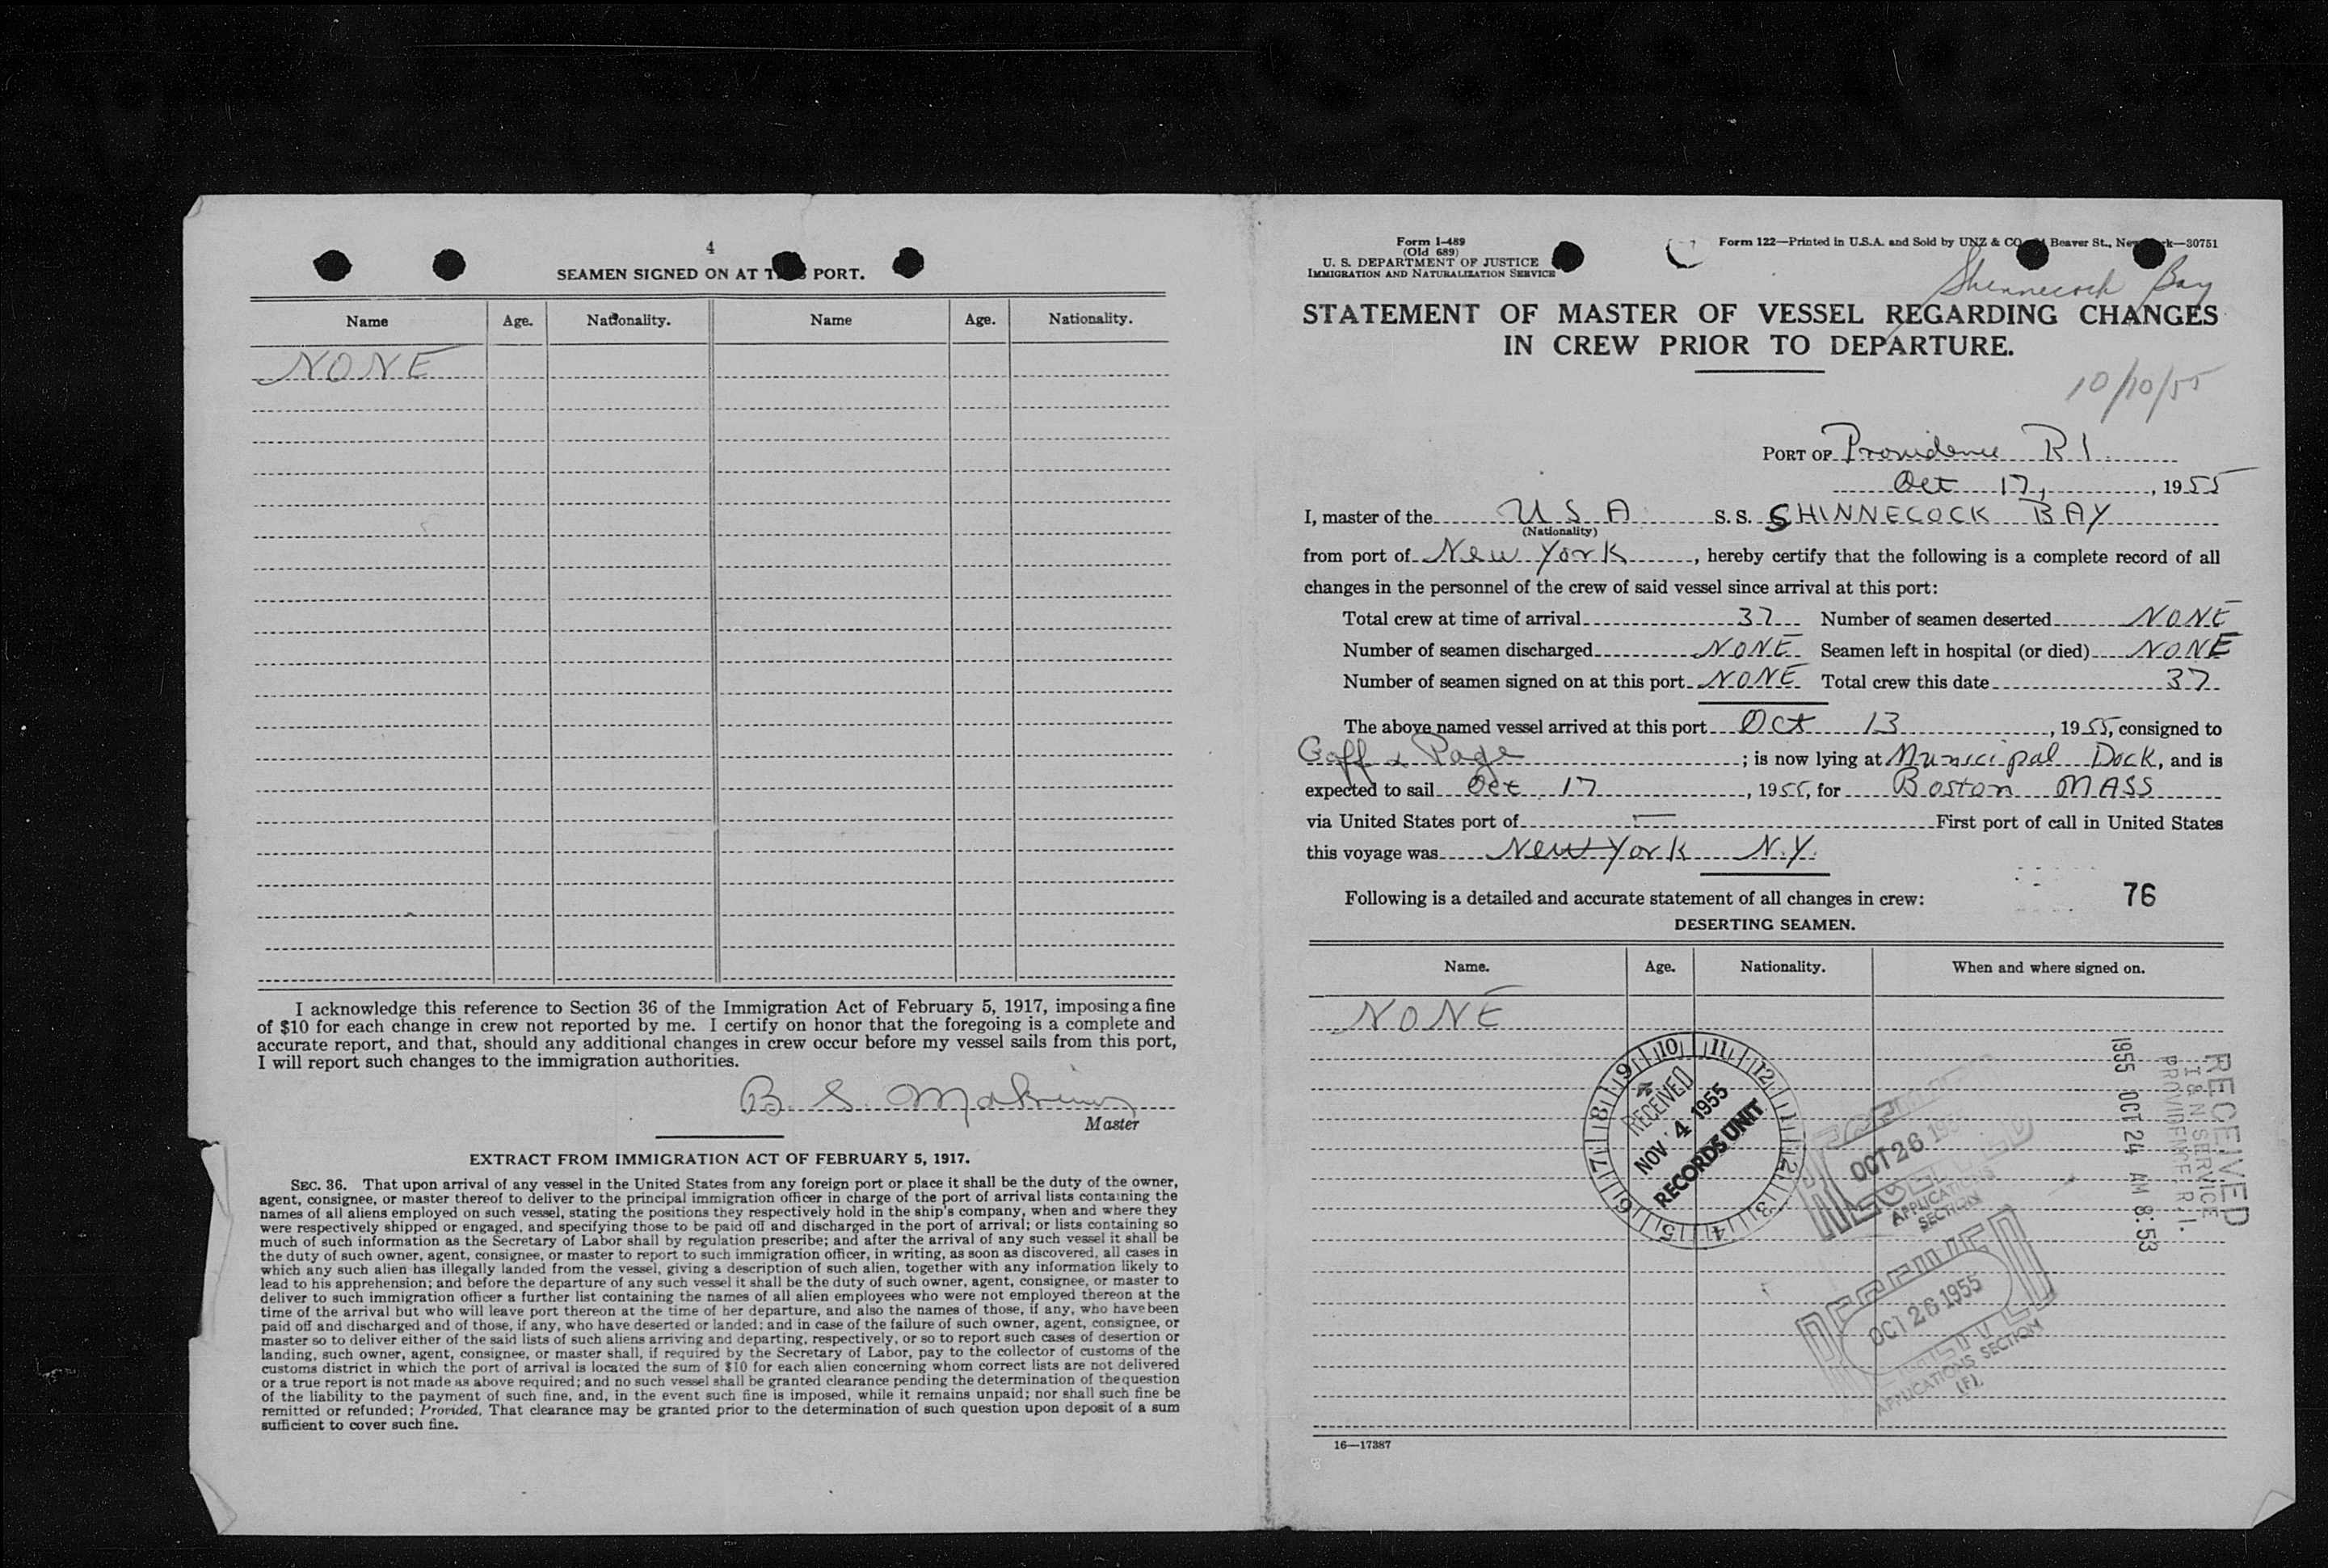 4
SEAMEN SIGNED ON AT PORT.
Name Age. Nationality. Name Age. Nationality.
NONE
I acknowledge this reference to Section 36 of the Immigration Act of February 5, 1917, imposing a fine
of $10 for each change in crew not reported by me. I certify on honor that the foregoing is a complete and
accurate report, and that, should any additional changes in crew occur before my vessel sails from this port,
I will report such changes to the immigration authorities.
B. S.
Master
EXTRACT FROM IMMIGRATION ACT OF FEBRUARY 5, 1917.
SEC. 36. That upon arrival of any vessel in the United States from any foreign port or place it shall be the duty of the owner,
agent, consignee, or master thereof to deliver to the principal immigration officer in charge of the port of arrival lists containing the
names of all aliens employed on such vessel, stating the positions they respectively hold in the ship's company, when and where they
were respectively shipped or engaged, and specifying those to be paid off and discharged in the port of arrival; or lists containing so
much of such information as the Secretary of Labor shall by regulation prescribe; and after the arrival of any such vessel it shall be
the duty of such owner, agent, consignee, or master to report to such immigration officer, in writing, as soon as discovered, all cases in
which any such alien has illegally landed from the vessel, giving a description of such alien, together with any information likely to
lead to his apprehension; and before the departure of any such vessel it shall be the duty of such owner, agent, consignee, or master to
deliver to such immigration officer a further list containing the names of all alien employees who were not employed thereon at the
time of the arrival but who will leave port thereon at the time of her departure, and also the names of those, if any, who have been
paid off and discharged and of those, if any, who have deserted or landed; and in case of the failure of such owner, agent, consignee, or
master so to deliver either of the said lists of such aliens arriving and departing, respectively, or so to report such cases of desertion or
landing, such owner, agent, consignee, or master shall, if required by the Secretary of Labor, pay to the collector of customs of the
customs district in which the port of arrival is located the sum of $10 for each alien concerning whom correct lists are not delivered
or a true report is not made as above required; and no such vessel shall be granted clearance pending the determination of the question
of the liability to the payment of such fine, and, in the event such fine is imposed, while it remains unpaid; nor shall such fine be
remitted or refunded; Provided, That clearance may be granted prior to the determination of such question upon deposit of a sum
sufficient to cover such fine.
Form I-489
(Old 689)
U. S. DEPARTMENT OF JUSTICE
IMMIGRATION AND NATURALIZATION SERVICE
Form 122—Printed in U.S.A. and Sold by UNZ & CO Beaver St., New York—30751
Shinnecock Bay
STATEMENT OF MASTER OF VESSEL REGARDING CHANGES
IN CREW PRIOR TO DEPARTURE.
10/10/55
PORT OF Providence R I
Oct 17, , 1955
I, master of the U S A S. S. SHINNECOCK BAY
(Nationality)
from port of New York , hereby certify that the following is a complete record of all
changes in the personnel of the crew of said vessel since arrival at this port:
Total crew at time of arrival 37 Number of seamen deserted NONE
Number of seamen discharged NONE Seamen left in hospital (or died) NONE
Number of seamen signed on at this port NONE Total crew this date 37
The above named vessel arrived at this port Oct 13 , 1955, consigned to
Goff & Page ; is now lying at Municipal Dock, and is
expected to sail Oct 17 , 1955, for Boston MASS
via United States port of — First port of call in United States
this voyage was New York N.Y.
Following is a detailed and accurate statement of all changes in crew: 76
DESERTING SEAMEN.
Name. Age. Nationality. When and where signed on.
NONE
10 11 12 1 2 3 4 5 6 7 8 9
RECEIVED
NOV 4 1955
RECORDS UNIT
OCT 26 19
APPLICATIONS
SECTION
OCT 26 1955
APPLICATIONS SECTION
(F)
RECEIVED
I & N SERVICE
PROVIDENCE, R. I.
1955 OCT 24 AM 8:53
16—17387